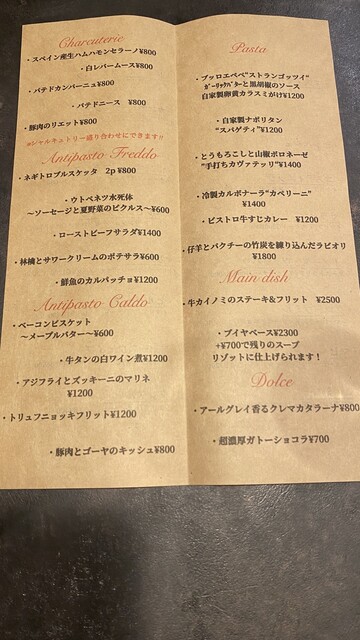 Charcuterie
・スペイン産生ハムハモンセラーノ¥800
・白レバームース¥800
・パテドカンパーニュ¥800
・パテドニース ¥800
・豚肉のリエット¥800
※シャルキュトリー盛り合わせにできます!!
Antipasto Freddo
・ネギトロブルスケッタ 2p ¥800
・ウトペネツ水死体
～ソーセージと夏野菜のピクルス～¥600
・ローストビーフサラダ¥1400
・林檎とサワークリームのポテサラ¥600
・鮮魚のカルパッチョ¥1200
Antipasto Caldo
・ベーコンビスケット
～メープルバター～¥600
・牛タンの白ワイン煮¥1200
・アジフライとズッキーニのマリネ
¥1200
・トリュフニョッキフリット¥1200
・豚肉とゴーヤのキッシュ¥800
Pasta
・ブッロエペペ"ストランゴッツイ"
ガーリックバターと黒胡椒のソース
自家製卵黄カラスミがけ¥1200
・自家製ナポリタン
"スパゲティ"¥1200
・とうもろこしと山椒ボロネーゼ
"手打ちカヴァテッリ"¥1400
・冷製カルボナーラ"カペリーニ"
¥1400
・ビストロ牛すじカレー ¥1200
・仔羊とパクチーの竹炭を練り込んだラビオリ
¥1800
Main dish
・牛カイノミのステーキ&フリット ¥2500
・ブイヤベース¥2300
+¥700で残りのスープ
リゾットに仕上げられます!
Dolce
・アールグレイ香るクレマカタラーナ¥800
・超濃厚ガトーショコラ¥700